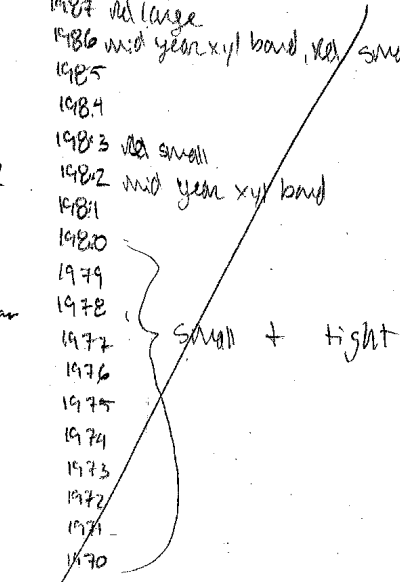 1987 rel large
1986 mid year xyl band, rel sma
1985
1984
1983 rel small
1982 mid year xyl band
1981
1980
1979
1978
1977 small + tight
1976
1975
1974
1973
1972
1971
1970